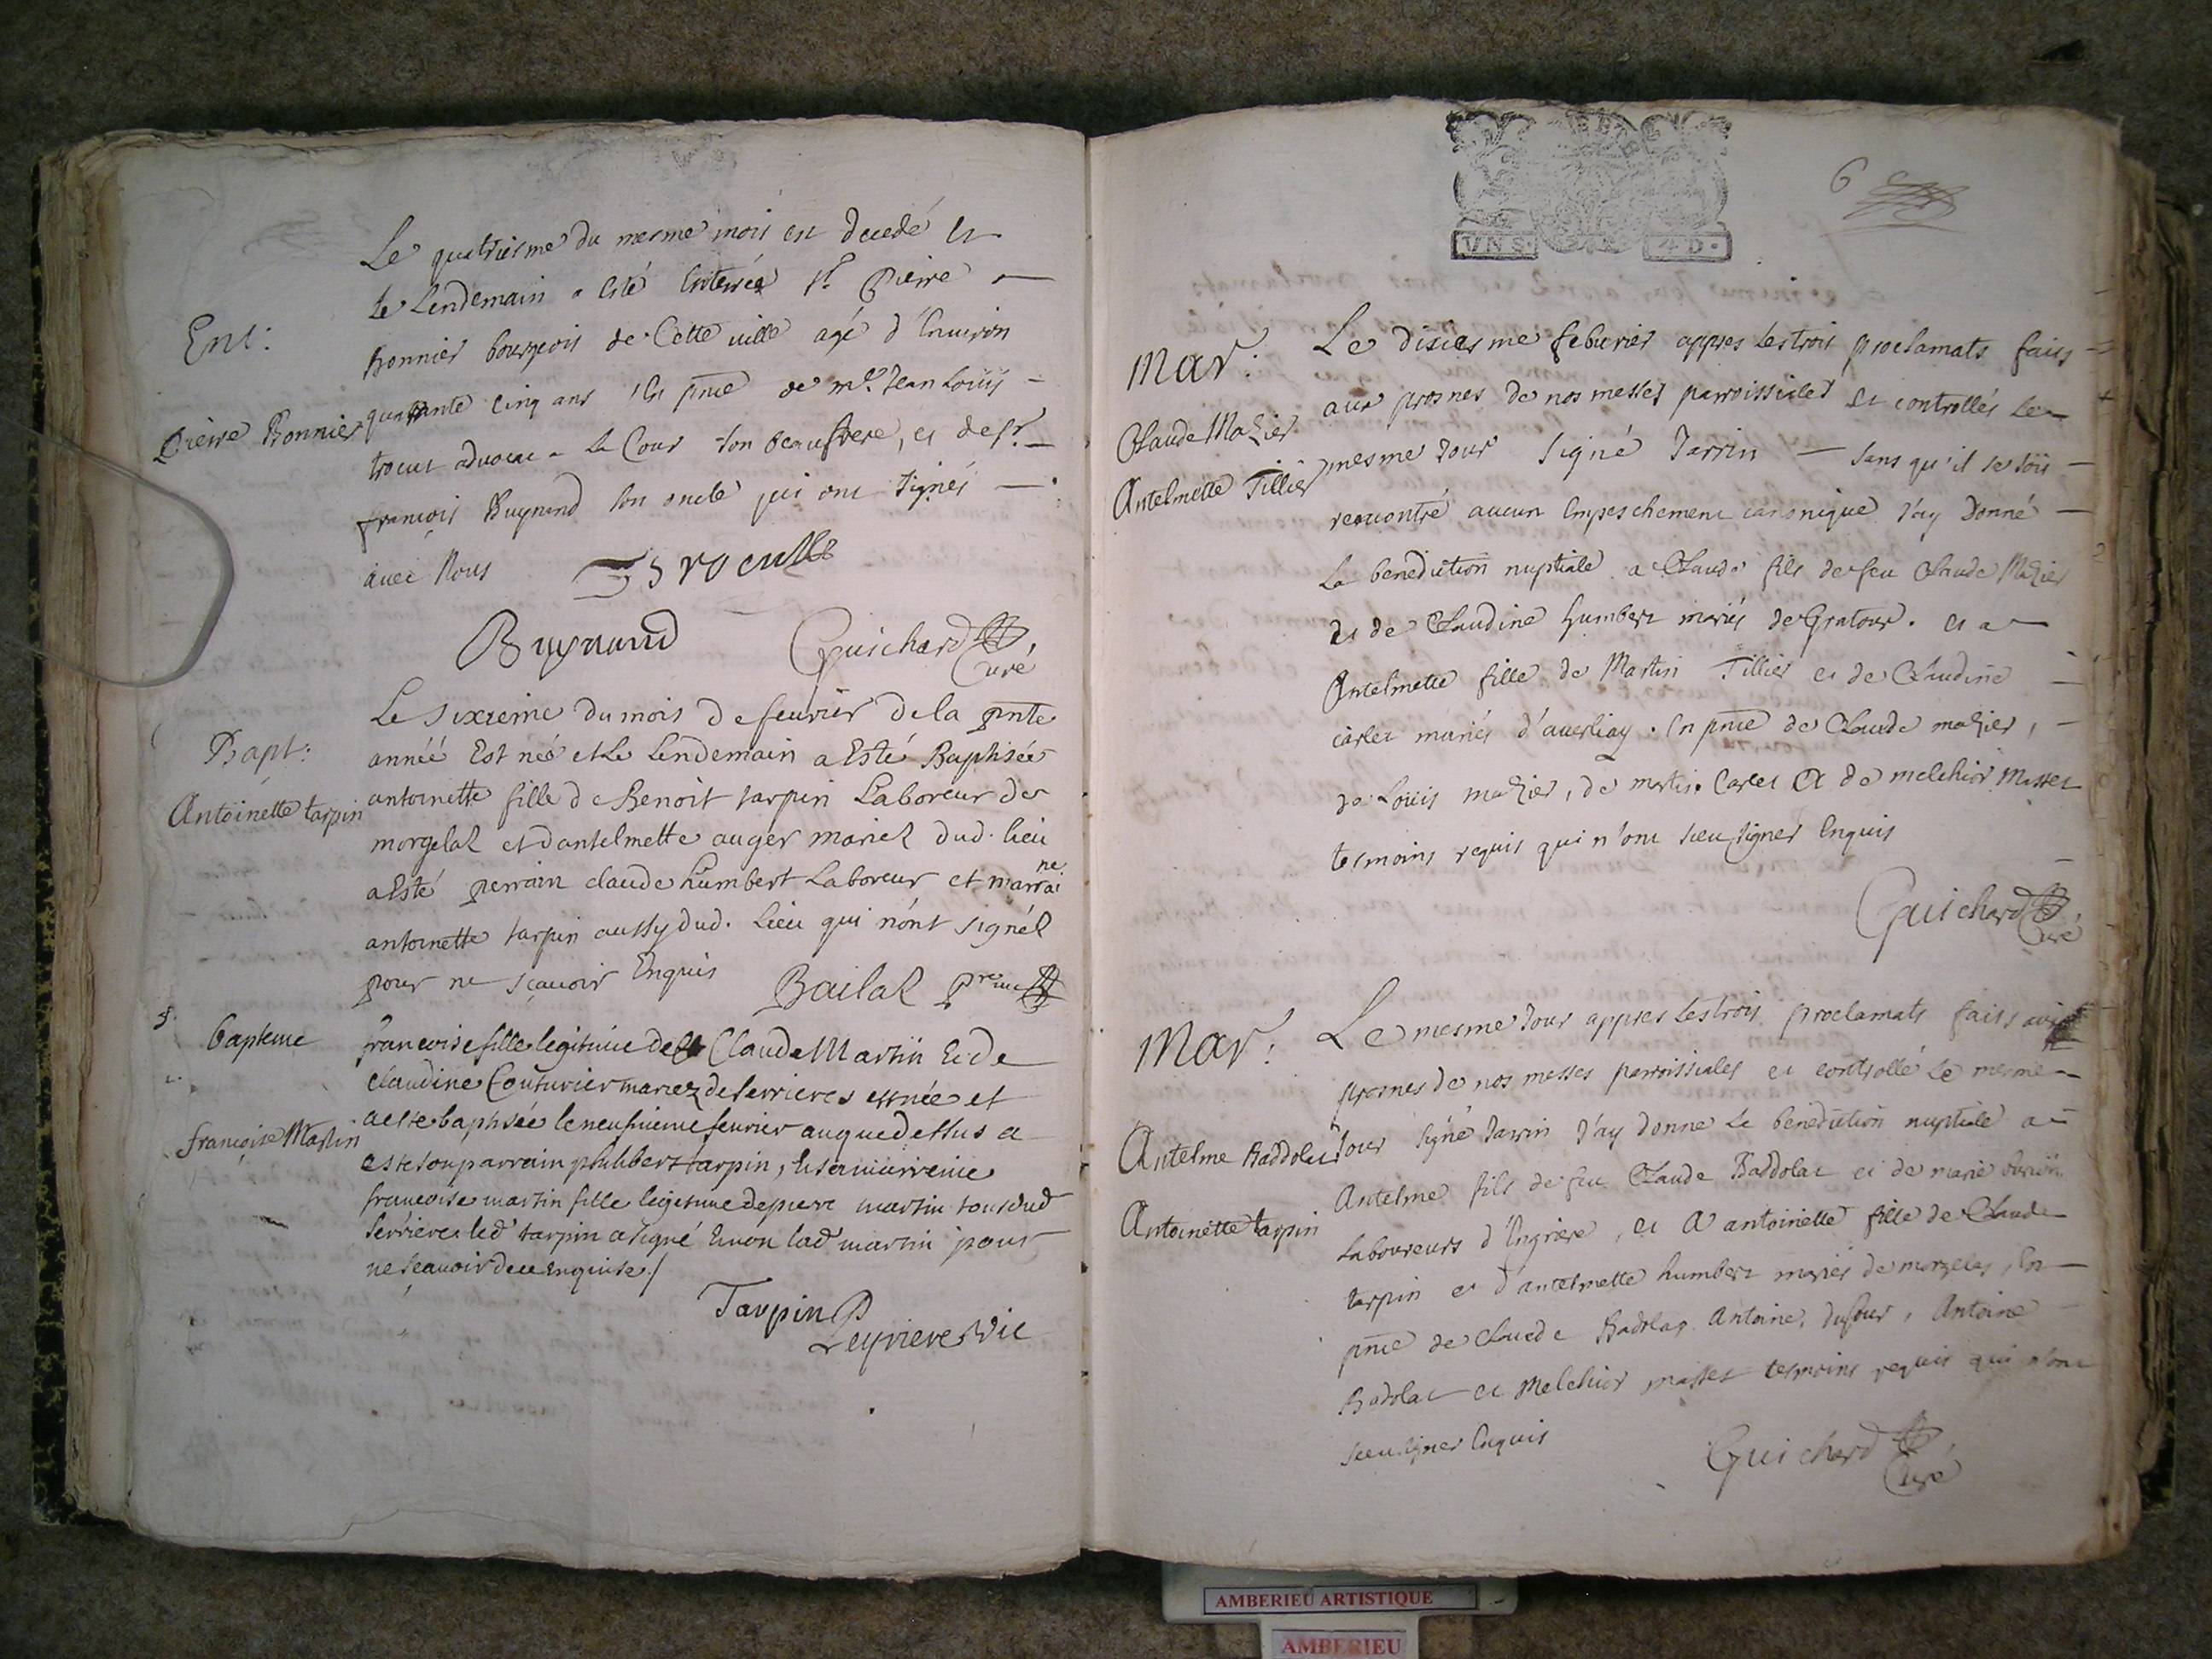 Le quatriesme du mesme mois est decedé et
le Lendemain a esté Enterrée Sr. Pierre
Ent:
Bonnier bourgeois de Cette ville agé d'Environ
Pierre Bonnier
quarante cinq ans En pnce de mre. Jean Loüis
trocut advocat a la Cour son beaufrere, et de Sr.
françois Buynand son oncle qui ont signés
avec Nous
Buynand Guichard
Curé
Le sixzieme du mois de feuvrier de la pnte
Bapt:
année Est née et Le Lendemain a Esté Baptisée
Antoinette tarpin
antoinette fille de Benoit tarpin Laboreur de
morgelaz et dantelmette auger mariez dud. lieu
a Esté perrain claude humbert Laboreur et marraine
antoinette tarpin aussy dud. Lieu qui n'ont signéz
pour ne sçavoir Enquis Bailaz
bapteme
francoise fille legitime de Claude Martin Et de
claudine Couturier mariez de serrieres est née et
a este baptisée le neufvieme fevrier auque dessus a
françoise Martin
este son parrain philibert tarpin, Et sa mareine
francoise martin fille legitime de pierre martin tous dud
serrieres led tarpin a signé Et non lad martin pour
ne scavoir de ce enquise
Tarpin
Leyriere Vic
VN S. 4 D.
6
Mar:
Le dixiesme feburier appres les trois proclamats faits
Claude Mazier
aux prosnes de nos messes parroissiales et controllés le
Antelmette Tillier
mesme Jour signé Jarrin sans qu'il se soit
rencontré aucun Empeschement canonique J'ay Donné
La benediction nuptiale a Claude fils de feu Claude Mazier
et de Claudine humbert mariés de Gratour. et a
Antelmette fille de Martin Tillier et de Claudine
carlet mariés d'averliay. En pnce de Claude mazier,
de Loüis mazier, de martin Carlet et de melchior Masset
tesmoins requis qui n'ont sceu signer Enquis
Guichard
Curé
Mar:
Le mesme Jour appres les trois proclamats faits aux
prosnes de nos messes parroissiales et controllé le mesme
Antelme Baddolat
Jour signé Jarrin J'ay donne la benediction nuptiale a
Antelme fils de feu Claude Baddolat et de marie
Antoinette tarpin
laboureurs d'Ingriere, et A antoinette fille de Claude
tarpin et d'antelmette humbert mariés de morgelas, En
pnce de Claude Badolat Antoine, dufour, Antoine
Badolat et Melchior masset tesmoins requis qui n'ont
sceu signer Enquis
Guichard
Curé
AMBERIEU ARTISTIQUE
AMBERIEU